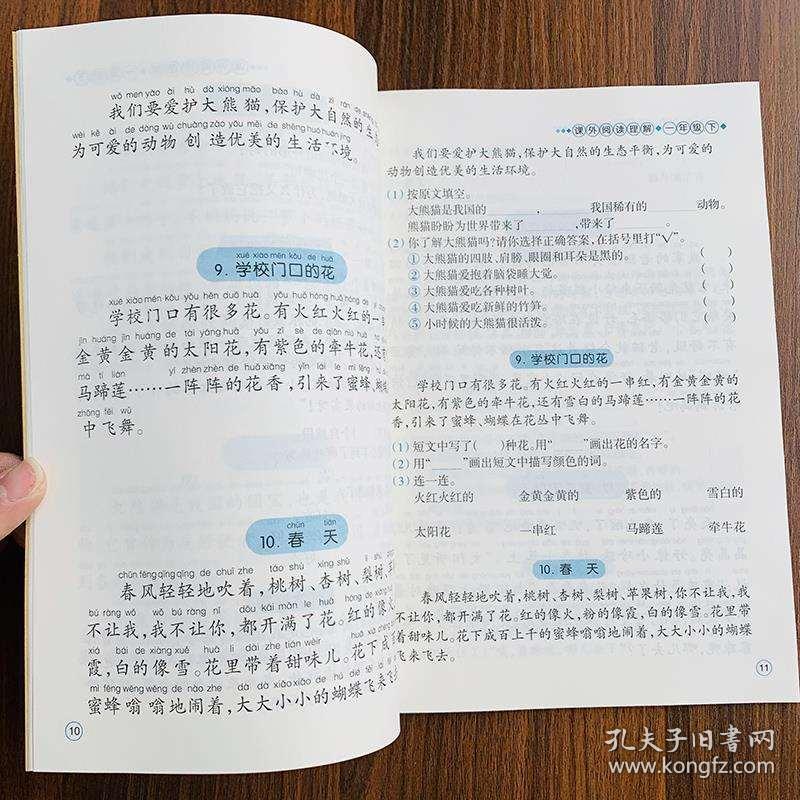 wǒ men yào ài hù dà xióng māo bǎo hù dà zì rán
我们要爱护大熊猫,保护大自然的生
wèi kě ài de dòng wù chuàng zào yōu měi de shēng huó huán jìng
为可爱的动物创造优美的生活环境。
xué xiào mén kǒu de huā
9. 学校门口的花
xué xiào mén kǒu yǒu hěn duō huā yǒu huǒ hóng huǒ hóng de yí
学校门口有很多花。有火红火红的一
jīn huáng jīn huáng de tài yáng huā yǒu zǐ sè de qiān niú huā
金黄金黄的太阳花,有紫色的牵牛花,还
mǎ tí lián yí zhèn zhèn de huā xiāng yǐn lái le mì fēng
马蹄莲……一阵阵的花香,引来了蜜蜂、蝴
zhōng fēi wǔ
中飞舞。
chūn tiān
10. 春 天
chūn fēng qīng qīng de chuī zhe táo shù xìng shù lí shù
春风轻轻地吹着,桃树、杏树、梨树、
bú ràng wǒ wǒ bú ràng nǐ dōu kāi mǎn le huā hóng de xiàng huǒ
不让我,我不让你,都开满了花。红的像火
xiá bái de xiàng xuě huā lǐ dài zhe tián wèir huā xià chéng
霞,白的像雪。花里带着甜味儿。花下成
mì fēng wēng wēng de nào zhe dà dà xiǎo xiǎo de hú dié fēi lái fēi
蜜蜂嗡嗡地闹着,大大小小的蝴蝶飞来飞
10
课外阅读理解 一年级下
我们要爱护大熊猫,保护大自然的生态平衡,为可爱的
动物创造优美的生活环境。
(1) 按原文填空。
大熊猫是我国的 , 我国稀有的 动物。
熊猫盼盼为世界带来了 ,带来了 。
(2) 你了解大熊猫吗?请你选择正确答案,在括号里打“√”。
① 大熊猫的四肢、肩膀、眼圈和耳朵是黑的。 ( )
② 大熊猫爱抱着脑袋睡大觉。 ( )
③ 大熊猫爱吃各种树叶。 ( )
④ 大熊猫爱吃新鲜的竹笋。 ( )
⑤ 小时候的大熊猫很活泼。 ( )
9. 学校门口的花
学校门口有很多花。有火红火红的一串红,有金黄金黄的
太阳花,有紫色的牵牛花,还有雪白的马蹄莲……一阵阵的花
香,引来了蜜蜂、蝴蝶在花丛中飞舞。
(1) 短文中写了( )种花。用“ ”画出花的名字。
(2) 用“ ”画出短文中描写颜色的词。
(3) 连一连。
火红火红的 金黄金黄的 紫色的 雪白的
太阳花 一串红 马蹄莲 牵牛花
10. 春 天
春风轻轻地吹着,桃树、杏树、梨树、苹果树,你不让我,我
不让你,都开满了花。红的像火,粉的像霞,白的像雪。花里带
着甜味儿。花下成百上千的蜜蜂嗡嗡地闹着,大大小小的蝴蝶
飞来飞去。
11
孔夫子旧书网
www.kongfz.com